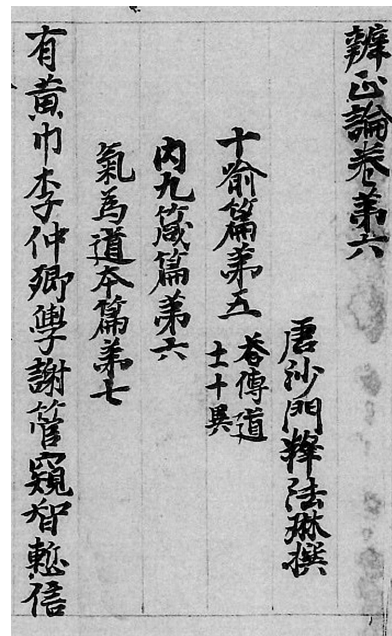 辯正論卷第六
唐沙門釋法琳撰
十喻篇第五 荅傅道士十異
內九箴篇第六
氣為道本篇第七
有黃巾李仲卿學謝管窺智慙信